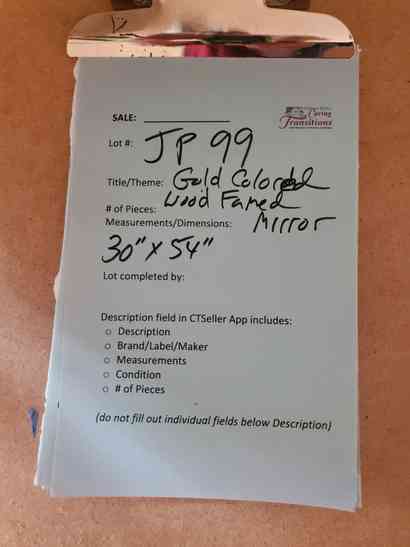 SALE: ____________
Caring
Transitions
Lot #: JP 99
Title/Theme: Gold Colored
# of Pieces: Wood Famed
Measurements/Dimensions: Mirror
30" x 54"
Lot completed by:
Description field in CTSeller App includes:
○ Description
○ Brand/Label/Maker
○ Measurements
○ Condition
○ # of Pieces
(do not fill out individual fields below Description)